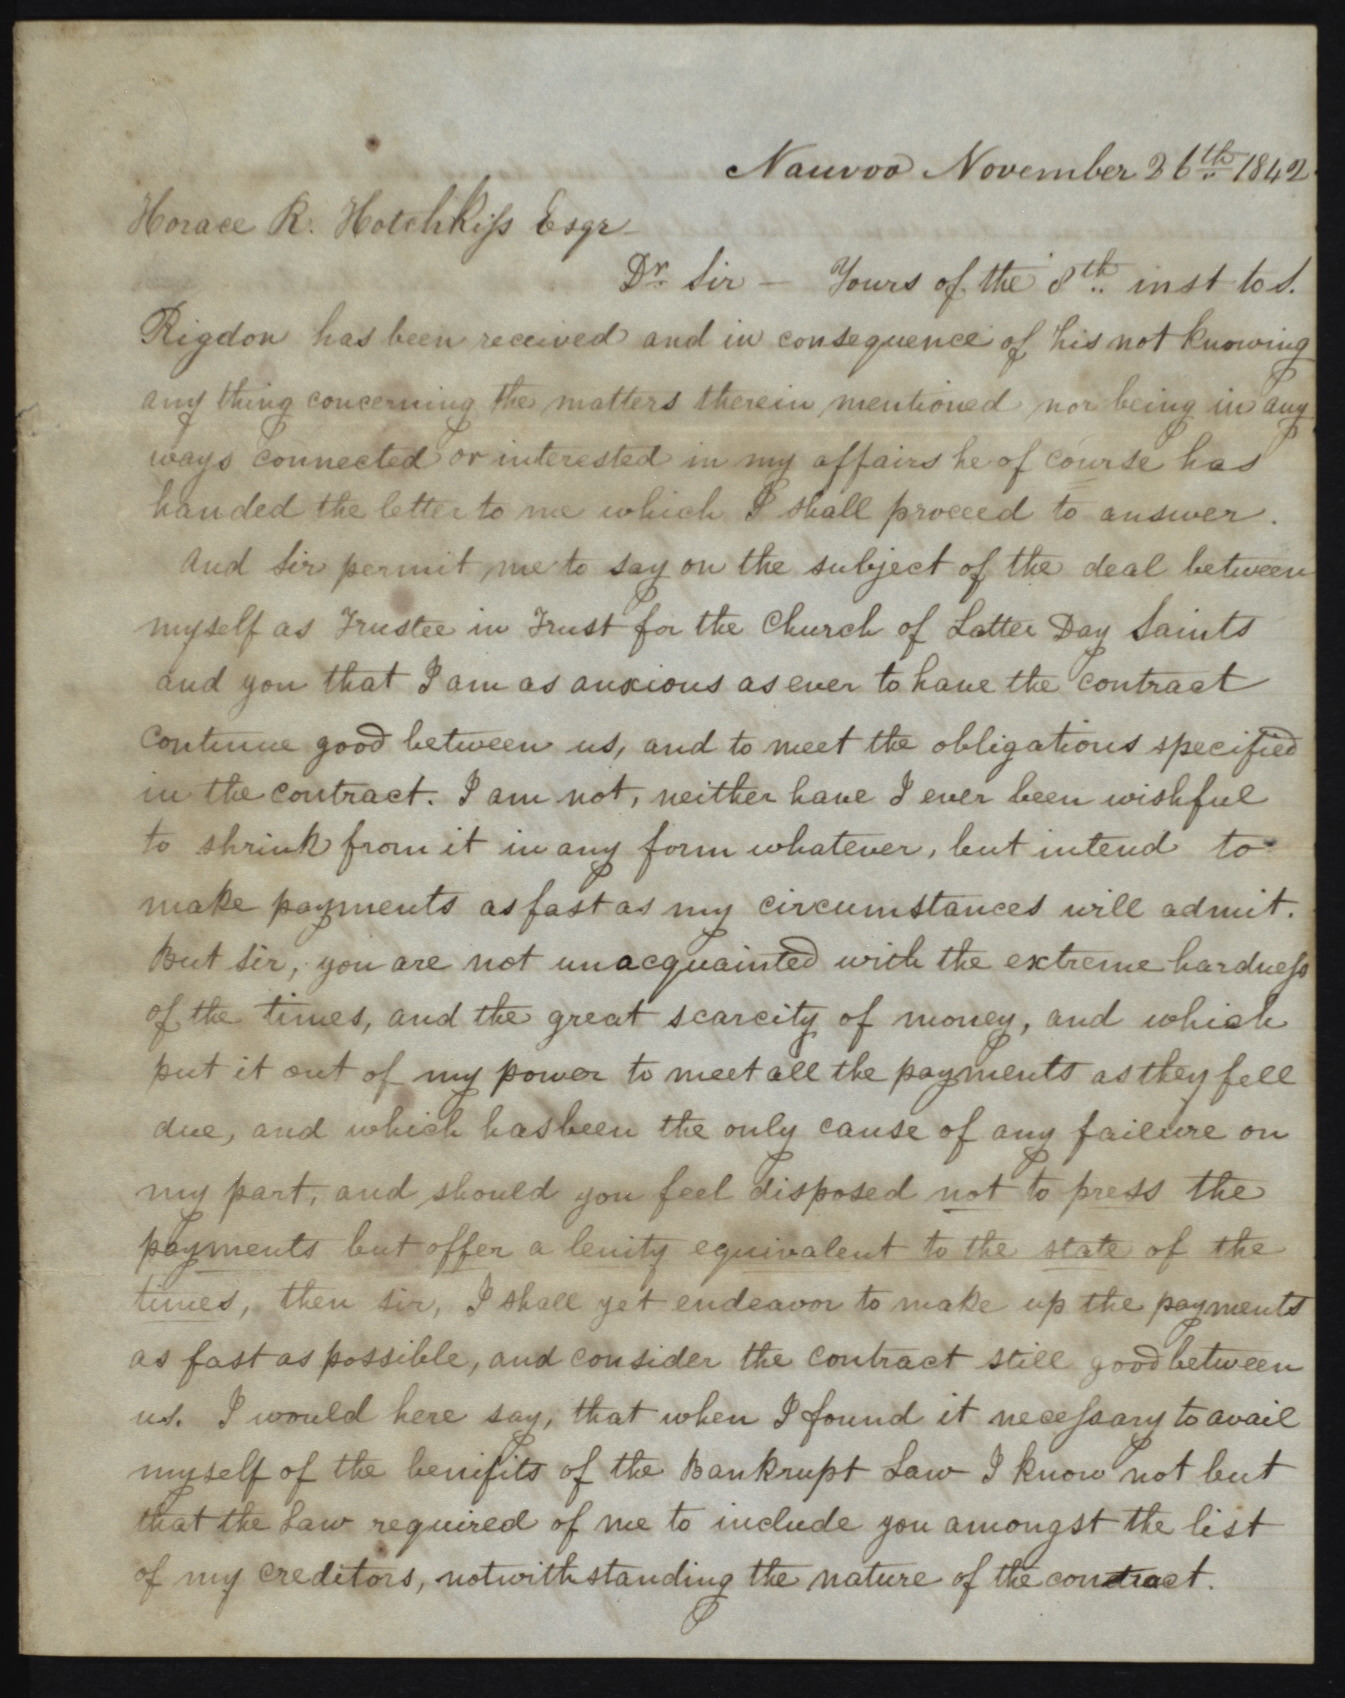 Nauvoo November 26th 1842.
Horace R. Hotchkiss Esqr
Dr. Sir — Yours of the 8th inst to S.
Rigdon has been received and in consequence of his not knowing
any thing concerning the matters therein mentioned nor being in any
ways connected or interested in my affairs he of course has
handed the letter to me which I shall proceed to answer.
And Sir permit me to say on the subject of the deal between
myself as Trustee in Trust for the Church of Latter Day Saints
and you that I am as anxious as ever to have the contract
continue good between us, and to meet the obligations specified
in the contract. I am not, neither have I ever been wishful
to shrink from it in any form whatever, but intend to
make payments as fast as my circumstances will admit.
But sir, you are not unacquainted with the extreme hardness
of the times, and the great scarcity of money, and which
put it out of my power to meet all the payments as they fell
due, and which has been the only cause of any failure on
my part, and should you feel disposed not to press the
payments but offer a lenity equivalent to the state of the
times, then sir, I shall yet endeavor to make up the payments
as fast as possible, and consider the contract still good between
us. I would here say, that when I found it necessary to avail
myself of the benifits of the Bankrupt Law I know not but
that the Law required of me to include you amongst the list
of my creditors, notwithstanding the nature of the contract.